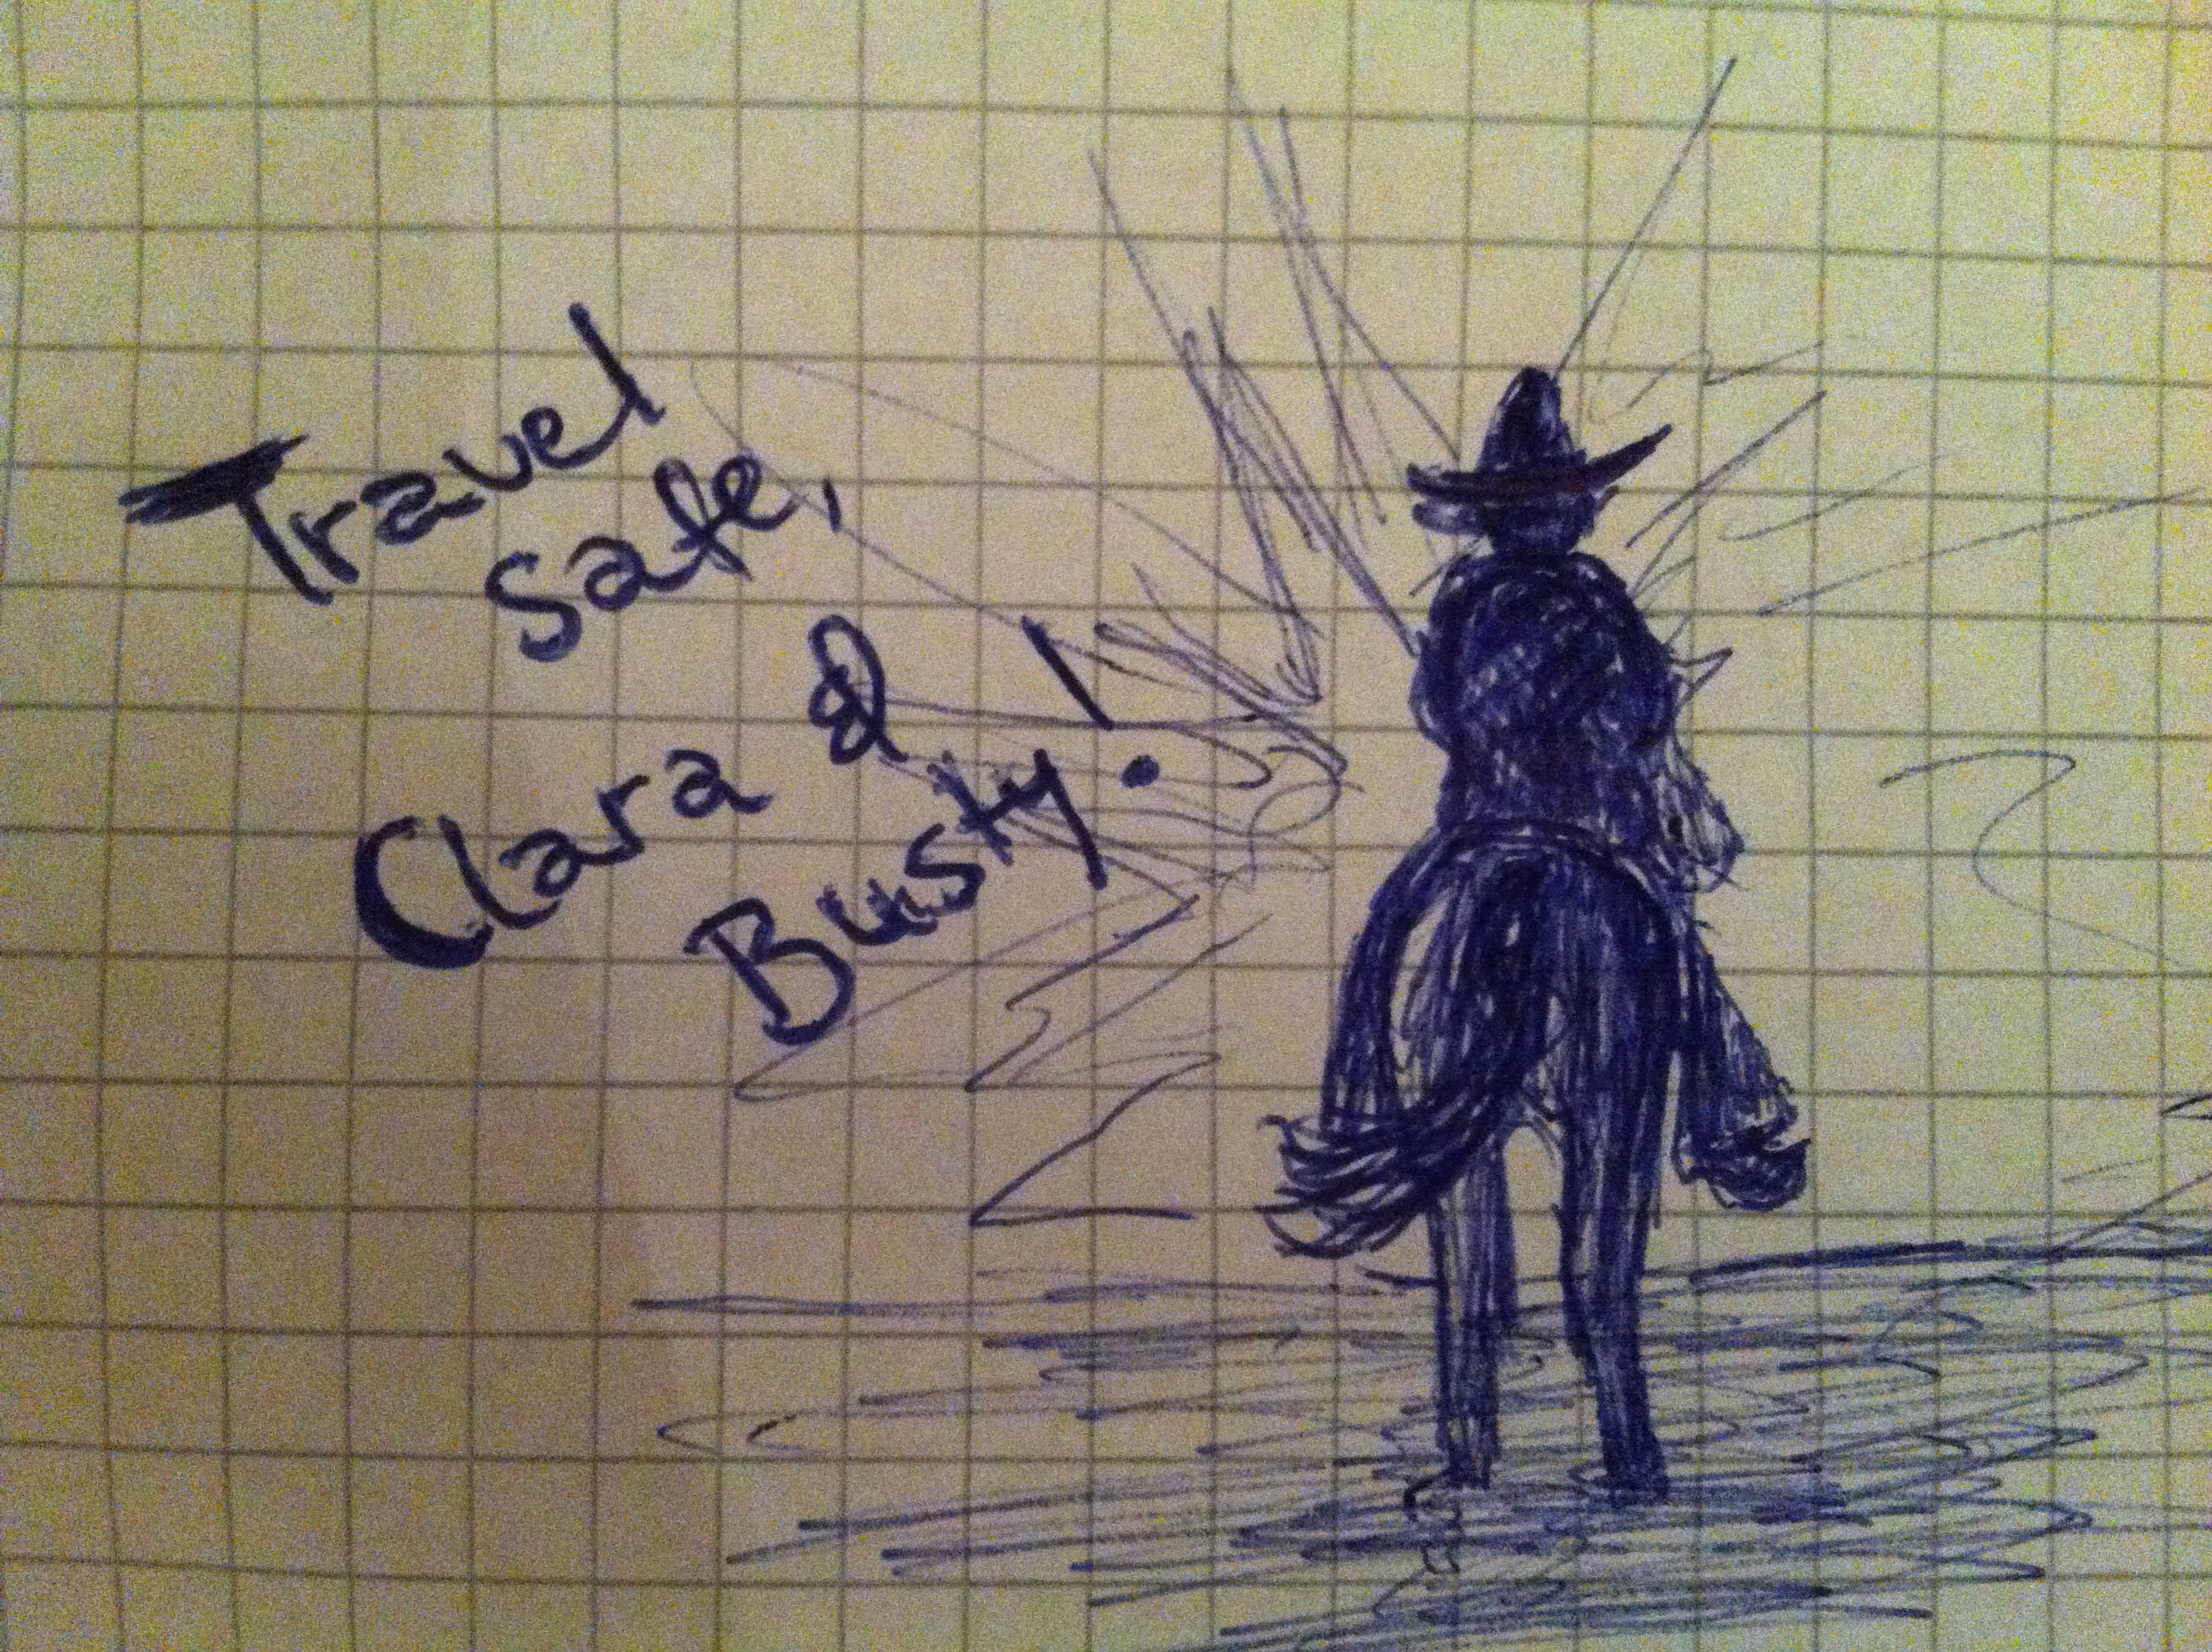 Travel
safe,
Clara &
Busty!